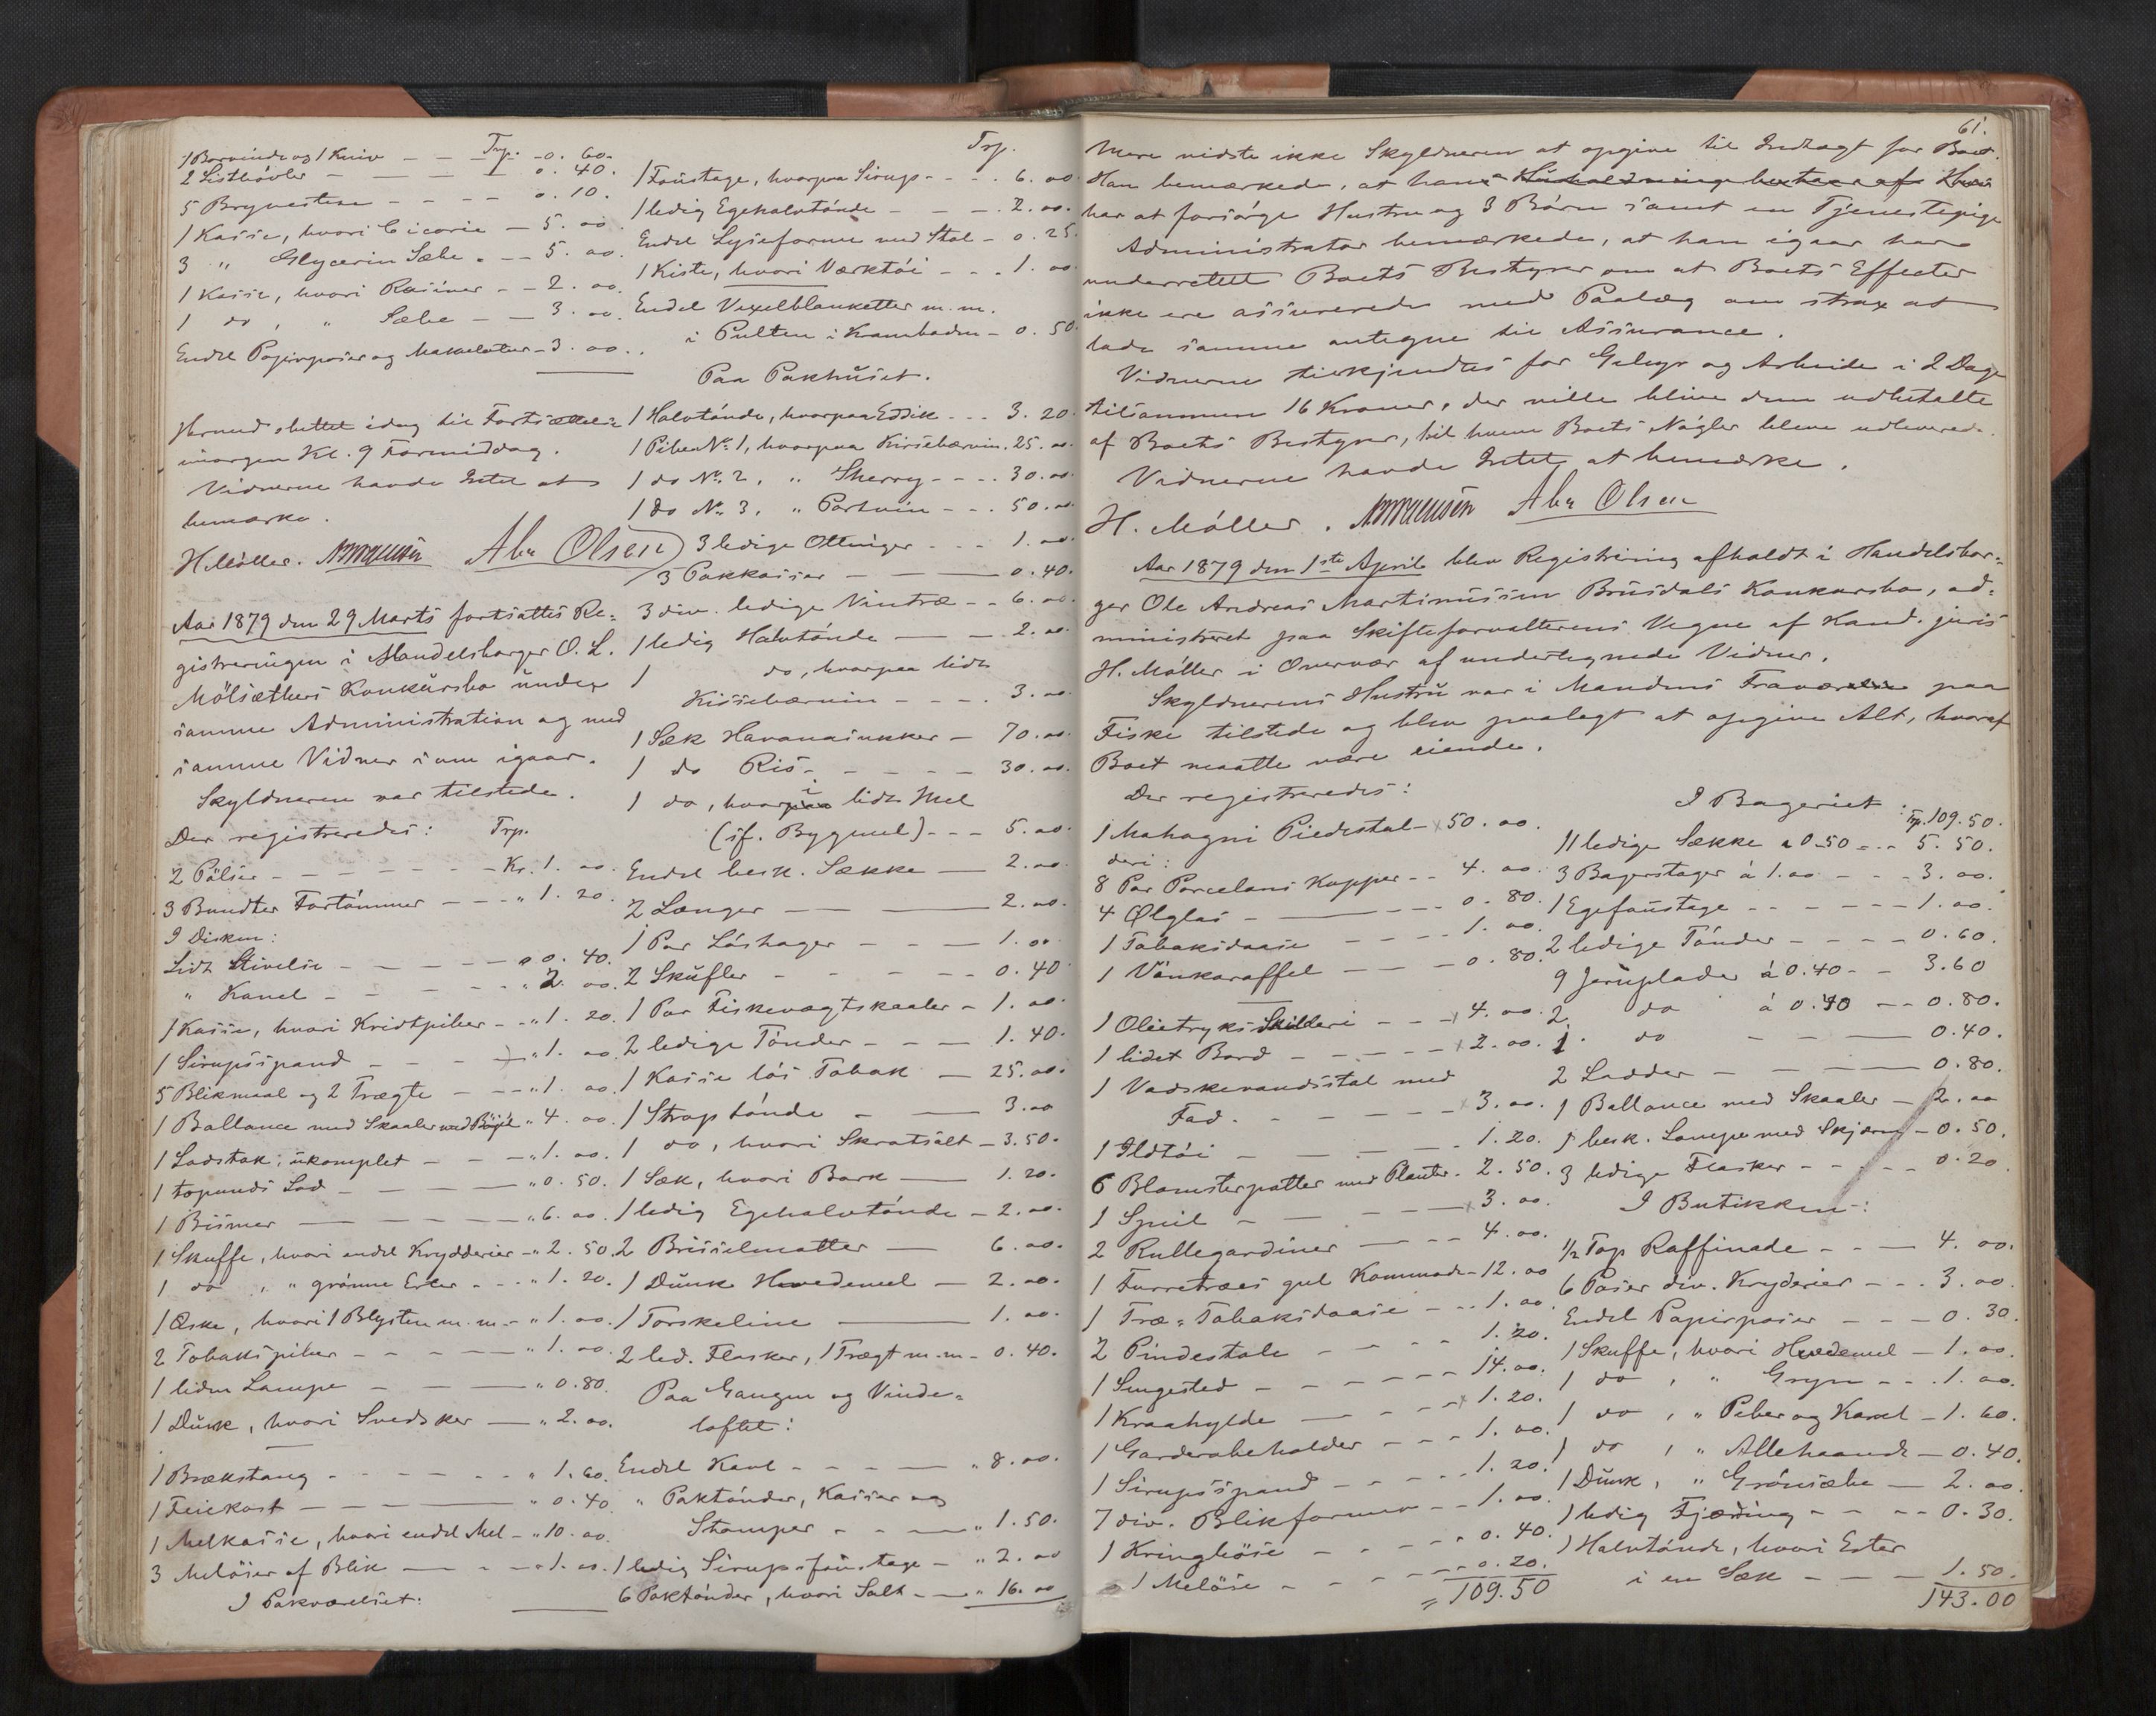 Trp.
1 Borvinde og 1 Kniv - - - 0. 60.
2 Listhøvler - - - 0. 40.
5 Brynestene - - - 0. 10.
1 Kasse, hvori Cicorie - 5. 00.
3 " Glycerin Sæbe - - 5. 00.
1 Kasse, hvori Rosiner - - 2. 00.
1 do, " Sæbe - - 3. 00.
Endel Papirposer og Makulatur - 3. 00.
Hermed sluttet idag til Fortsættelse
imorgen Kl. 9 Formiddag.
Vidnerne havde Intet at
bemærke.
H. Møller. Abr Olsen
Aar 1879 den 29 Marts fortsattes Re=
gistreringen i Handelsborger O. L.
Mølsæthers Konkursbo under
samme Administration og med
samme Vidner som igaar.
Skyldneren var tilstede.
Der registreredes: Trp.
2 Pölser - - - Kr. 1. 00.
3 Bundter Fortømmer - - - " 1. 20.
I Disken:
Lidt Stivelse - - - " 0. 40.
" Kanel - - - " 2. 00.
1 Kasse, hvori Kridtpiber - - " 1. 20.
1 Sirupsspand - - - " 1. 00.
5 Blikmaal og 2 Trægte - - " 1. 00.
1 Ballance med Skaaler med Bøile " 4. 00.
1 Lodstok, ukomplet - - - " 1. 00.
1 topunds Lod - - - " 0. 50.
1 Bismer - - - " 6. 00.
1 Skuffe, hvori endel Krydderier - " 2. 50.
1 do , " grønne Erter - - - " 1. 20.
1 Æske, hvori 1 Blysten m. m. - " 1. 00.
2 Tobakspiber - - - " 1. 00.
1 liden Lampe - - - " 0. 80.
1 Dunk, hvori Svedsker - " 2. 00.
1 Brækstang - - - " 1. 60.
1 Feiekost - - - " 0. 40.
1 Melkasse, hvori endel Mel - " 10. 00.
3 Meløser af Blik - - - " 1. 00.
I Pakværelset:
Trp.
1 Foustage, hvorpaa Sirup - - - 6. 00
1 ledig Egehalvtønde - - - 2. 00.
Endel Lyseforme med Stol - 0. 25.
1 Kiste, hvori Værktøi - - - 1. 00
Endel Vexelblanketter m. m.
i Pulten i Kramboden - 0. 50.
Paa Pakhuset.
1 Halvtønde, hvorpaa Eddik - - - 3. 20.
1 Pibe No. 1, hvorpaa Kirsebærvin. 25. 00.
1 do No. 2, " Sherry - - - 30. 00.
1 do No. 3, " Portvin - - - 50. 00.
3 ledige Ottinger - - - 1. 00.
3 Pakkasser - - - 0. 40.
3 div. ledige Vintræ - - 6. 00.
1 ledig Halvtønde - - 2. 00.
1 do, hvorpaa lidt
Kissebærvin - - - 3. 00.
1 Sæk Havanasukker - 70. 00.
1 do Ris - - - 30. 00.
1 do, hvori lidt Mel
(sf. Bygmel) - - - 5. 00.
Endel besk. Sække - 2. 00.
2 Longer - - 2. 00.
1 Par Løshager - - - 1. 00
2 Skufler - - - 0. 40
1 Par Fiskevægtskaaler - 1. 00.
2 ledige Tønder - - - 1. 40.
1 Kasse løs Tobak - 25. 00.
1 Straptønde - - 3. 00
1 do, hvori Skratsalt - 3. 50.
1 Sæk, hvori Bark - 1. 20.
1 ledig Egehalvtønde - 2. 00.
2 Brisselmatter - 6. 00.
1 Dunk Hvedemel - 2. 00.
1 Torskeline - 1. 00.
2 led. Flasker, 1 Trægt m. m - 0. 40.
Paa Gangen og Vinde=
loftet:
Endel Kavl - - - " 8. 00.
" Paktønder, Kasser og
Stamper - - - " 1. 50.
1 ledig Sirupsfoustage - " 2. 00
6 Paktønder, hvori Salt - " 16. 00
61.
Mere vidste ikke Skyldneren at opgive til Indtægt for Boet.
Han bemærkede, at han
har at forsørge Hustru og 3 Børn samt en Tjenestepige
Administrator bemærkede, at han igaar har
underrettet Boets Bestyrer om at Boets Effecter
ikke ere assurerede med Paalæg om strax at
lade samme antegne til Assurance.
Vidnerne tilkjendtes for Gebyr og Arbeide i 2 Dage
tilsammen 16 Kroner, der ville blive dem udbetalte
af Boets Bestyrer, til hvem Boets Nøgler bleve udleverede.
Vidnerne havde Intet at bemærke.
H. Møller. Abr Olsen
Aar 1879 den 1ste April blev Registrering afholdt i Handelsbor=
ger Ole Andreas Martinussen Brusdals Konkursbo, ad=
ministreret paa Skifteforvalterens Vegne af Kand. juris
H. Møller i Overvær af undertegnede Vidner.
Skyldnerens Hustru var i Mandens Fravær paa
Fiske tilstede og blev paalagt at opgive Alt, hvoraf
Boet maatte være eiende.
Der registreredes:
1 Mahagni Piedestal - x 50. 00.
deri:
8 Par Porcelæns Kopper - - 4. 00.
4 Ølglas - - - 0. 80.
1 Tobaksdaase - - - 1. 00.
1 Vinkaraffel - - - 0. 80.
1 Olietryks Skilderi - - x 4. 00.
1 lidet Bord - - - x 2. 00.
1 Vadskevandsstol med
Fad. - - - x 3. 00.
1 Ildtøi - - - 1. 20.
6 Blomsterpotter med Planter. 2. 50.
1 Speil - - - x 3. 00.
2 Rullegardiner - - - 4. 00.
1 Furretræes gul Kommode - 12. 00
1 Træ=Tobaksdaase - - - 1. 00.
2 Pindestole - - - 1. 20.
1 Sengested - - - 14. 00.
1 Kraahylde - - - x 1. 20.
1 Garderobeholder - - - 1. 00.
1 Sirupsspand - - - 1. 20.
7 div. Blikformer - - 1. 00.
1 Kringløse - - - 0. 40.
1 Meløse - - - 0. 20.
= 109. 50
I Bageriet: Trp. 109. 50.
11 ledige Sække a 0.50 - - 5. 50.
3 Bagerstager á 1. 00 - - - 3. 00.
1 Egefoustage - - - 1. 00.
2 ledige Tønder - - - 0. 60.
9 Jernplader á 0. 40 - - 3. 60
2 do á 0. 40 - - 0. 80.
1 do - - 0. 40.
2 Ladder - - - 0. 80.
1 Ballance med Skaaler - 2. 00
1 besk. Lampe med Skjærm - 0. 50.
3 ledige Flasker - - - 0. 20.
I Butikken:
1/2 Top Raffinade - - - 4. 00.
6 Poser div. Kryderier - - - 3. 00.
Endel Papirposer - - - 0. 30.
1 Skuffe, hvori Hvedemel - 1. 00.
1 do , " Gryn - - . 1. 00.
1 do , " Peber og Kanel - 1. 60.
1 do , " Allehaande - 0. 40.
1 Dunk, " Grønsæbe - 2. 00.
1 ledig Fjerding - - - 0. 30.
1 Halvtønde, hvori Erter
i en Sæk - - - 1. 50.
143. 00